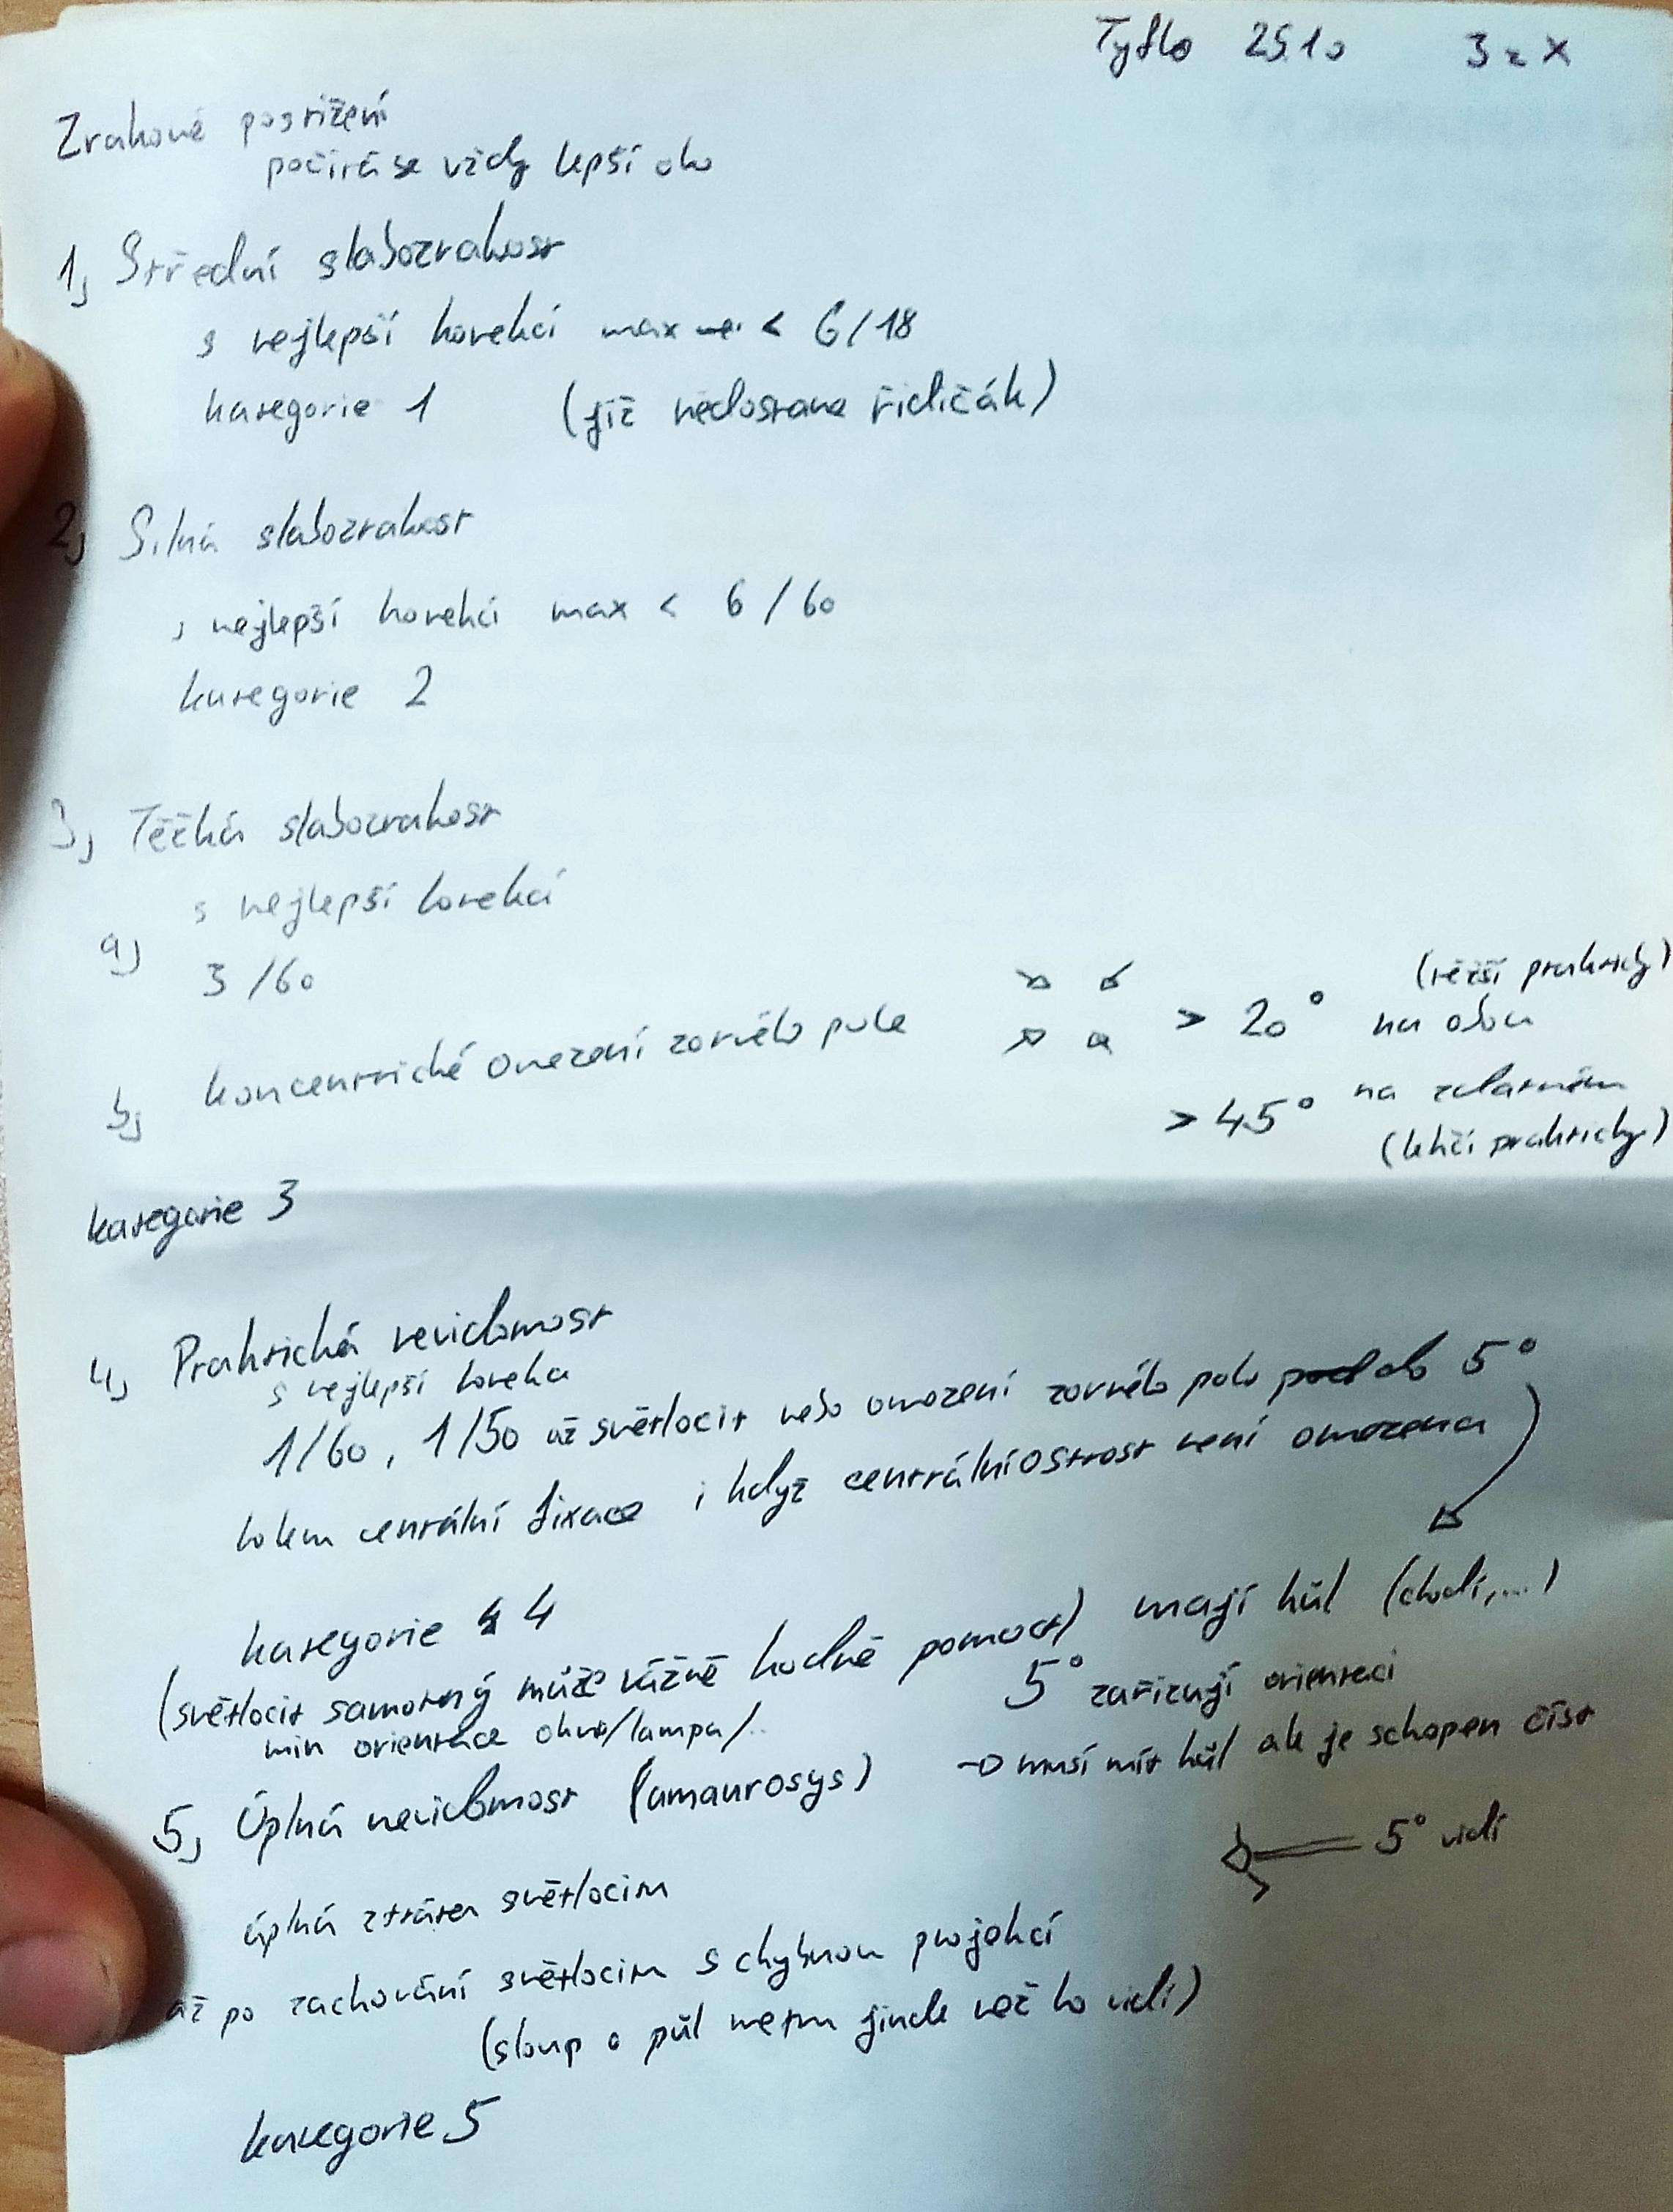 Tyflo 25.10 3 z X
Zrakové postižení
počítá se vždy lepší oko
1, Střední slabozrakost
s nejlepší korekcí max < 6/18
kategorie 1 (již nedostane řidičák)
2, Silná slabozrakost
s nejlepší korekcí max < 6/60
kategorie 2
3, Těžká slabozrakost
s nejlepší korekcí
a, 3/60
b, koncentrické omezení zorného pole > 20° na obou (těžší prakticky)
> 45° na zdatném (lehčí prakticky)
kategorie 3
4, Praktická nevidomost
s nejlepší korekcí
1/60, 1/50 až světlocit nebo omezení zorného pole do 5°
kolem centrální fixace i když centrální ostrost není omezena
kategorie 4
mají hůl (chodí,...)
(světlocit samotný může vážně hodně pomoct)
min orientace okno/lampa/..
5° zařizují orientaci
→ musí mít hůl ale je schopen číst
5° vidí
5, Úplná nevidomost (amaurosys)
úplná ztráta světlocitu
až po zachování světlocitu s chybnou projekcí
(sloup o půl metru jinde než ho vidí)
kategorie 5